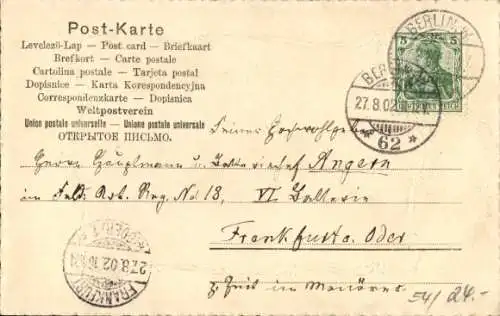 Post-Karte
Levelező-Lap — Post card — Briefkaart
Brefkort — Carte postale
Cartolina postale — Tarjeta postal
Dopisnice — Karta Korespondencyjna
Correspondenzkarte — Dopisnica
Weltpostverein
Union postale universelle — Unione postale universale
ОТКРЫТОЕ ПИСЬМО.
BERLIN W.
5 5
DEUTSCHES REICH
BERLIN
27.8.02
* 62 *
Seiner Hochwohlgeboren
Herrn Hauptmann u. Angern
im Feld. Art. Reg. No 18, VI Batterie
Frankfurt a. Oder
z. Zeit im Manöver
27.8.02
FRANKFURT
(ODER) 1
54/ 24.-